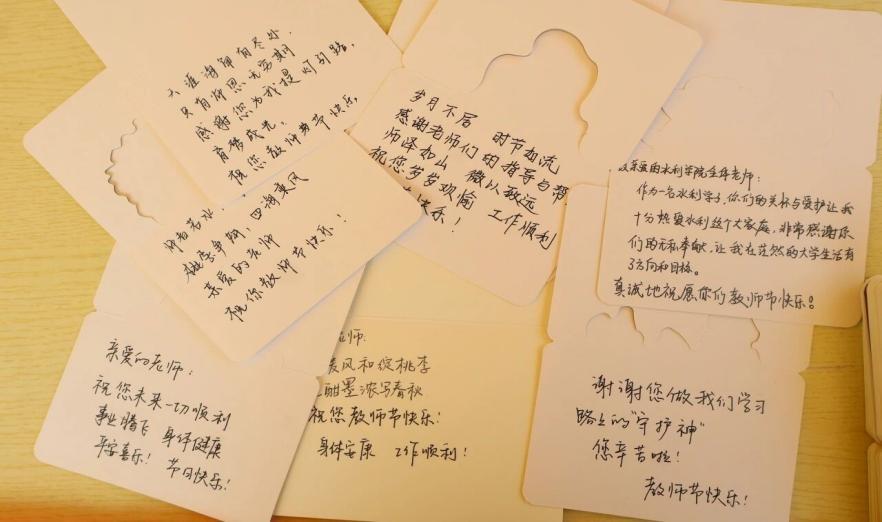 天涯海角有尽处
只有师恩无穷期
感谢您为我提灯引路，
育梦成光。
祝您教师节快乐
岁月不居 时节如流
感谢老师们的指导与帮
师泽如山 微以致远
祝您岁岁欢愉 工作顺利
快乐！
亲爱的水利学院全体老师：
作为一名水利学子，你们的关怀与爱护让我
十分热爱水利这个大家庭，非常感谢你
们的无私奉献，让我在茫然的大学生活有
了方向和目标。
真诚地祝愿你们教师节快乐！
师者若水，
桃李争妍，四海乘风
亲爱的老师
祝你教师节快乐！
亲爱的老师：
祝您未来一切顺利
事业腾飞 身体健康
平安喜乐！ 节日快乐！
老师：
风和绽桃李
酣墨浓写春秋
祝您教师节快乐！
身体安康 工作顺利！
谢谢您做我们学习
路上的“守护神”
您辛苦啦！
教师节快乐！